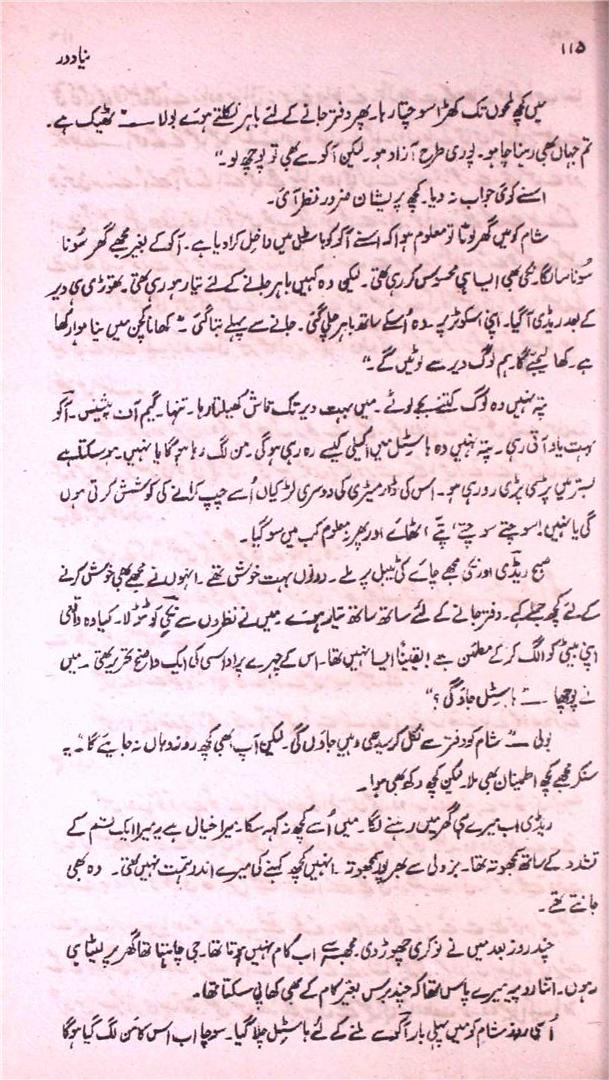 ۱۱۵
نیا دور
میں کچھ لمحوں تک کھڑا سوچتا رہا۔ پھر دفتر جانے کے لئے باہر نکلتے ہوئے بولا — ٹھیک ہے۔
تم جہاں بھی رہنا چاہو۔ پوری طرح آزاد ہو۔ لیکن آکو سے بھی تو پوچھ لو۔"
اسنے کوئی جواب نہ دیا۔ کچھ پریشان ضرور نظر آئی۔
شام کو میں گھر لوٹا تو معلوم ہوا کہ اسنے آکو کو ہاسٹل میں داخل کرا دیا ہے۔ آکو کے بغیر مجھے گھر سُونا
سُونا سا لگا۔ نکی بھی اب ہی محسوس کر رہی تھی۔ لیکن وہ کہیں باہر جانے کے لئے تیار ہو رہی تھی۔ تھوڑی ہی دیر
کے بعد ریڈی آ گیا۔ اپنی اسکوٹر پر۔ وہ اُسکے ساتھ باہر چلی گئی۔ جانے سے پہلے بتا گئی — کھانا کچن میں بنا ہوا رکھا
ہے۔ کھا لیجئے گا۔ ہم لوگ دیر سے لوٹیں گے۔"
پتہ نہیں وہ لوگ کتنے بجے لوٹے۔ میں بہت دیر تک تاش کھیلتا رہا۔ تنہا۔ گیم آن پیشنس۔ آکو
بہت یاد آتی رہی۔ پتہ نہیں وہ ہاسٹل میں اکیلی کیسے رہ رہی ہوگی۔ من لگ رہا ہو گا یا نہیں۔ ہو سکتا ہے
بستر میں پڑی پڑی رو رہی ہو۔ اس کی ڈارمیٹری کی دوسری لڑکیاں اُسے چپ کرانے کی کوشش کرتی ہوں
گی یا نہیں! سوچتے سوچتے، پتّے اٹھائے اور پھر نہ معلوم کب میں سو گیا۔
صبح ریڈی اور نکی مجھے چائے کی ٹیبل پر ملے۔ دونوں بہت خوش تھے۔ انہوں نے مجھے بھی خوش کرنے
کے لئے کچھ جملے کہے۔ دفتر جانے کے لئے ساتھ ساتھ تیار ہوئے۔ میں نے نظروں سے نکی کو ٹٹولا۔ کیا وہ واقعی
اپنی بیٹی کو الگ کر کے مطمئن ہے! یقیناً ایسا نہیں تھا۔ اس کے چہرے پر اداسی کی ایک واضح تحریر تھی۔ میں
نے پوچھا — ہاسٹل جاؤ گی؟"
بولی — شام کو دفتر سے نکل کر سیدھی وہیں جاؤں گی۔ لیکن آپ بھی کچھ روز وہاں نہ جایئے گا۔" یہ
سنکر مجھے کچھ اطمینان بھی ملا۔ لیکن کچھ دکھ بھی ہوا۔
ریڈی اب میرے ہی گھر میں رہنے لگا۔ میں اُسے کچھ نہ کہہ سکا۔ میرا خیال ہے یہ میرا ایک قسم کے
تشدد کے ساتھ سمجھوتہ تھا۔ بزدلی سے بھرپور سمجھوتہ۔ انہیں کچھ کہنے کی میرے اندر ہمت نہیں تھی۔ وہ بھی
جانتے تھے۔
چند روز بعد میں نے نوکری چھوڑ دی۔ مجھ سے اب کام نہیں ہوتا تھا۔ جی چاہتا تھا گھر پر لیٹا ہی
رہوں۔ اتنا روپیہ میرے پاس تھا کہ چند برس بغیر کام کے بھی کھا پی سکتا تھا۔
اُسی روز شام کو میں پہلی بار آکو سے ملنے کے لئے ہاسٹل چلا گیا۔ سوچا اب اس کا من لگ گیا ہو گا